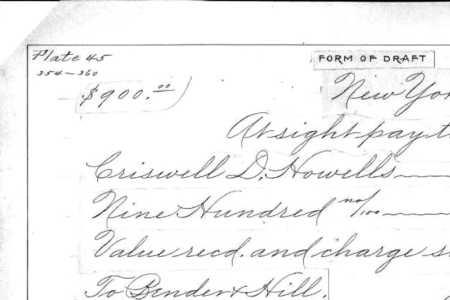 Plate 45
354-360
FORM OF DRAFT
$900.00
New Yor
At sight pay t
Criswell D. Howells
Nine Hundred no/100
Value recd. and charge s
To Bender & Hill.